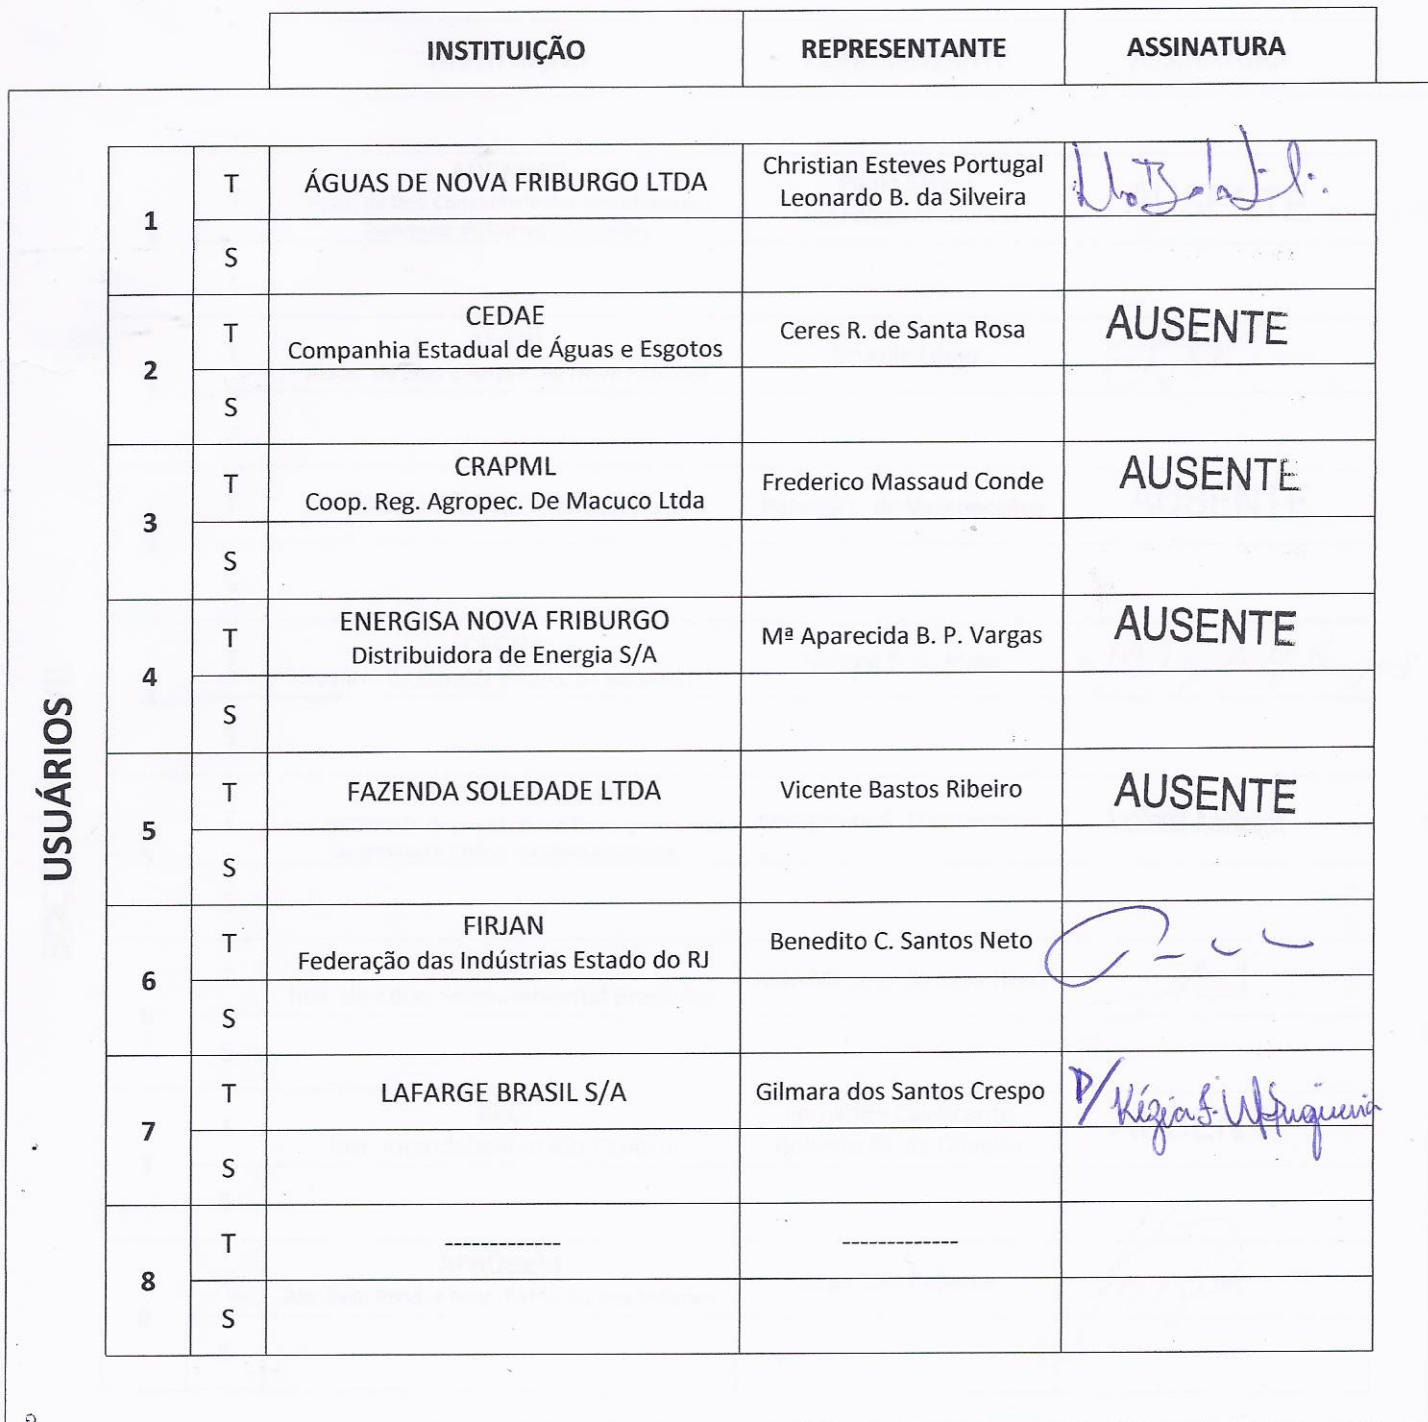 INSTITUIÇÃO REPRESENTANTE ASSINATURA
USUÁRIOS
1
T ÁGUAS DE NOVA FRIBURGO LTDA Christian Esteves Portugal
Leonardo B. da Silveira
S
2
T CEDAE
Companhia Estadual de Águas e Esgotos Ceres R. de Santa Rosa AUSENTE
S
3
T CRAPML
Coop. Reg. Agropec. De Macuco Ltda Frederico Massaud Conde AUSENTE
S
4
T ENERGISA NOVA FRIBURGO
Distribuidora de Energia S/A Mª Aparecida B. P. Vargas AUSENTE
S
5
T FAZENDA SOLEDADE LTDA Vicente Bastos Ribeiro AUSENTE
S
6
T FIRJAN
Federação das Indústrias Estado do RJ Benedito C. Santos Neto
S
7
T LAFARGE BRASIL S/A Gilmara dos Santos Crespo P/ Kézia
S
8
T ------------- -------------
S